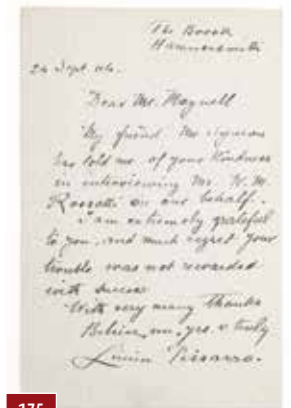 The Brook
Hammersmith
24 Sept. 04.
Dear Mr. Meynell
My friend Mr
has told me of your kindness
in interviewing Mr. W. M.
Rossetti on our behalf.
I am extremely grateful
to you, and much regret your
trouble was not rewarded
with success
With very many thanks
Believe me, yrs. v. truly
Lucien Pissarro.
175